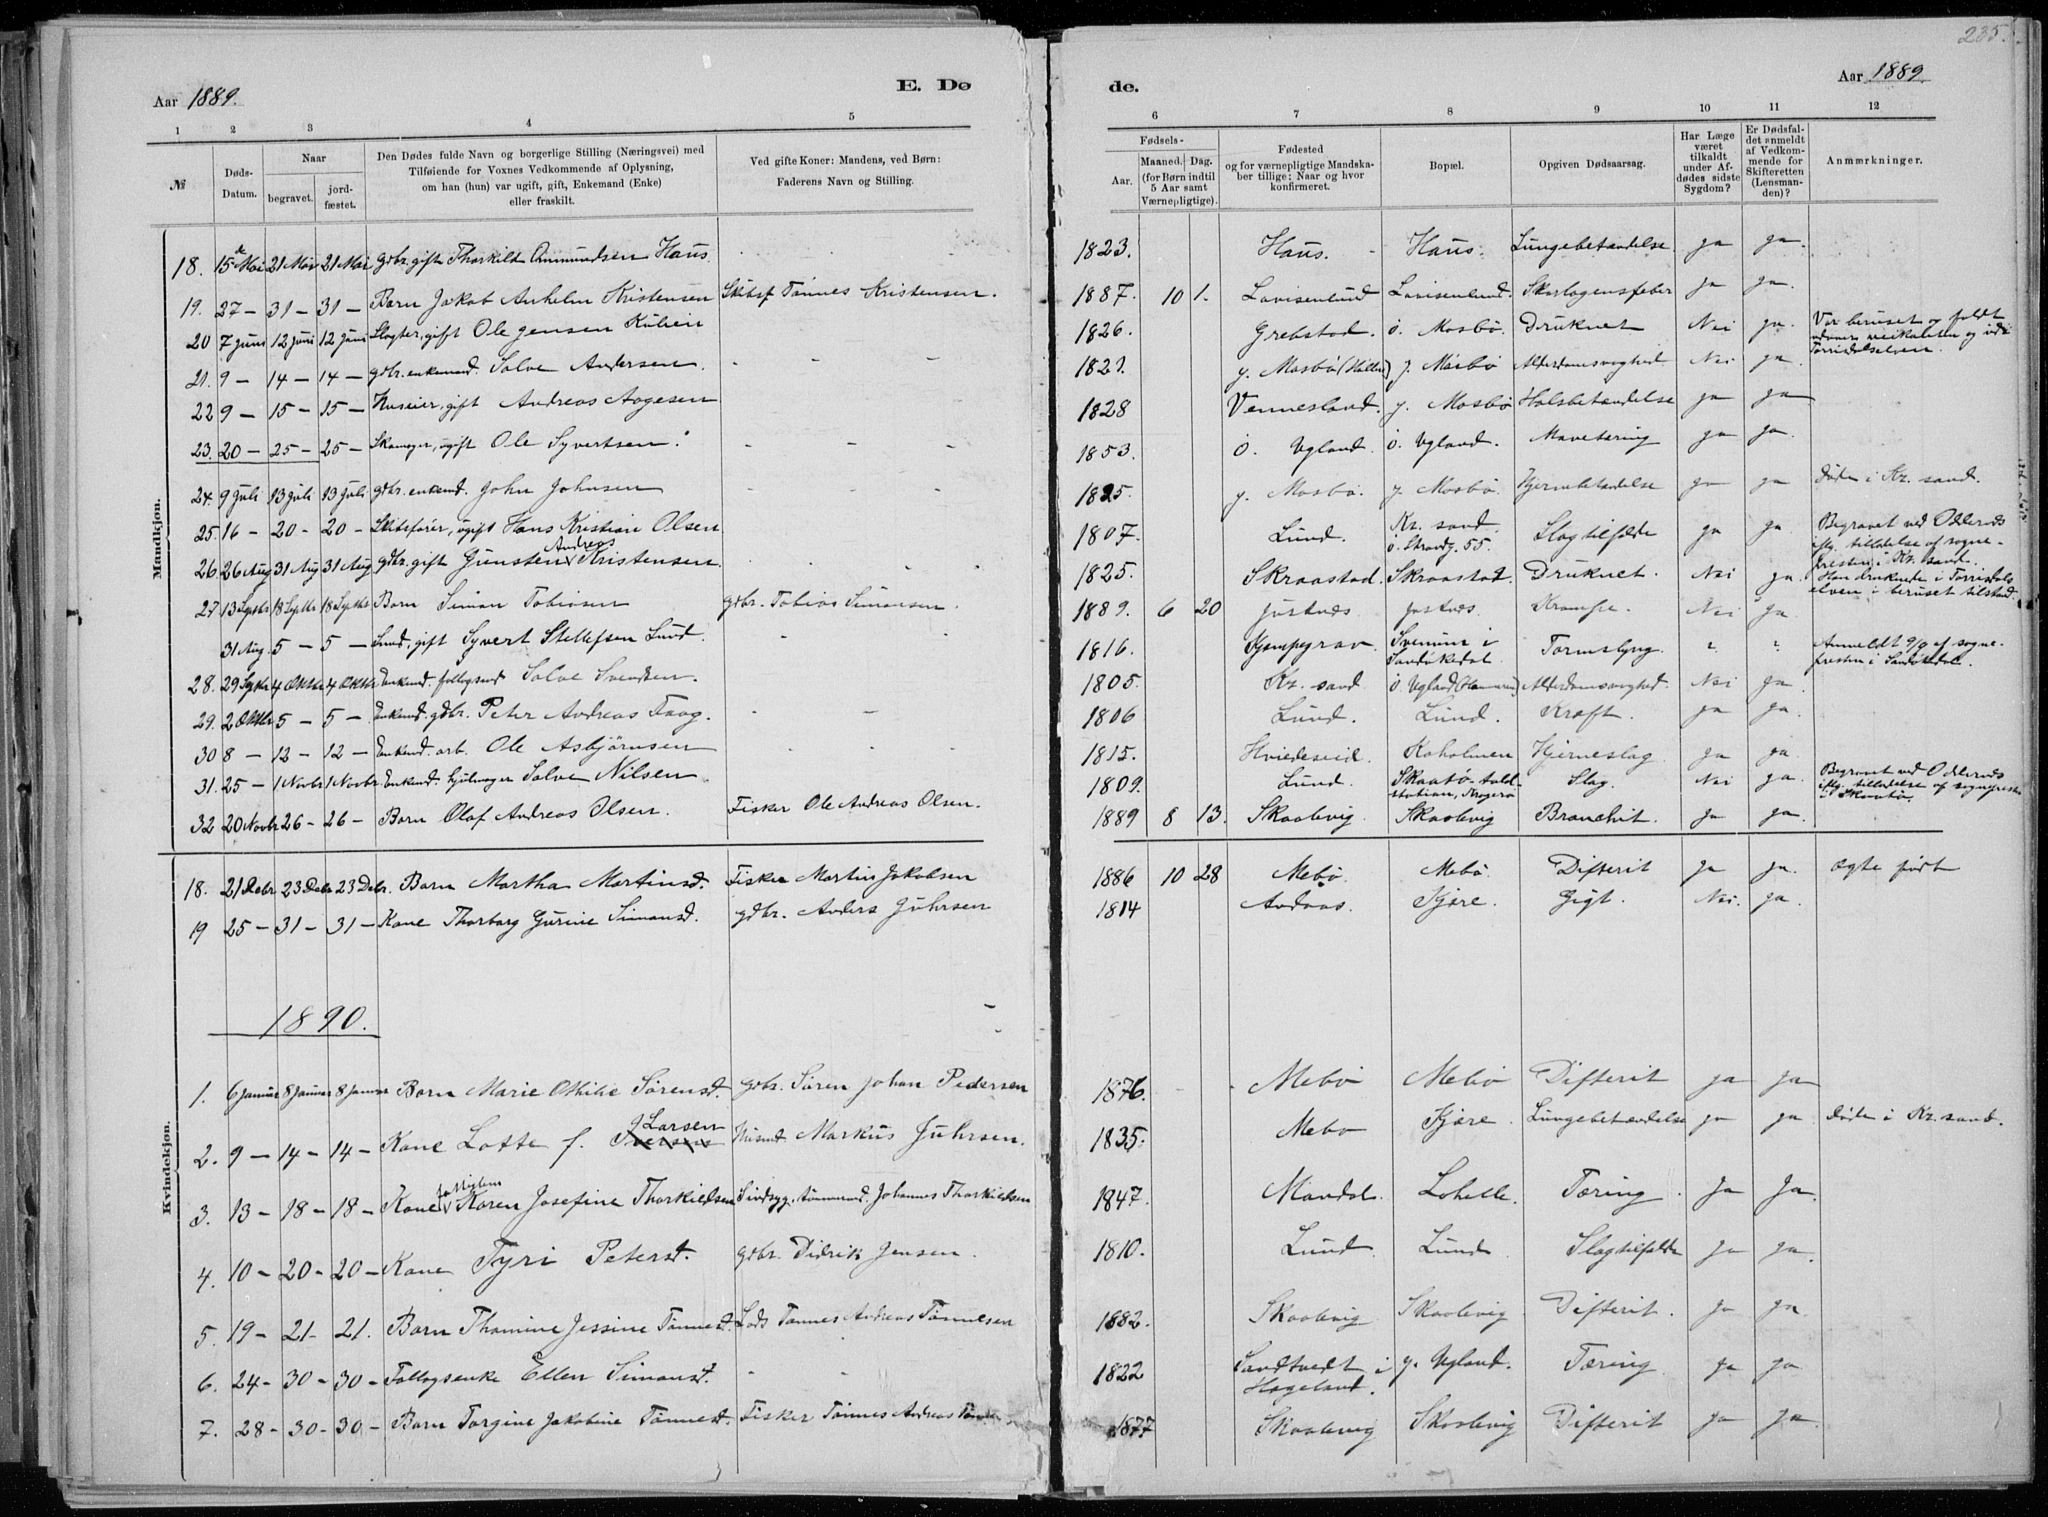 235.
Aar 1889.
E. Dø
de.
Aar 1889
1 2 3 4 5
6 7 8 9 10 11 12
№
Døds-Datum.
Naar
begravet.
jord-fæstet.
Den Dødes fulde Navn og borgerlige Stilling (Næringsvei) med
Tilføiende for Voxnes Vedkommende af Oplysning,
om han (hun) var ugift, gift, Enkemand (Enke)
eller fraskilt.
Ved gifte Koner: Mandens, ved Børn:
Faderens Navn og Stilling.
Fødsels-
Aar.
Maaned. Dag.
(for Børn indtil
5 Aar samt
Værnepligtige).
Fødested
og for værnepligtige Mandska-
ber tillige: Naar og hvor
konfirmeret.
Bopæl.
Opgiven Dødsaarsag.
Har Læge
været
tilkaldt
under Af-
dødes sidste
Sygdom?
Er Dødsfal-
det anmeldt
af Vedkom-
mende for
Skifteretten
(Lensman-
den)?
Anmærkninger.
Mandkjøn.
18. 15 Mai 21 Mai 21 Mai gdbr. gift Thorkild Ommundsen Haus 1823. Haus. Haus. Lungebetændelse ja ja.
19. 27 - 31 - 31 - Barn Jakob Anhelm Kristensen Skibsf Tønnes Kristensen. 1887. 10 1. Lovisenlund Lovisenlund. Skarlagensfeber ja ja.
20 7 Juni 12 Juni 12 Juni Slagter, gift Ole Jensen 1826. Grebstad. ö. Mosbö. Druknet Nei ja. Var beruset og faldt
21. 9 - 14 - 14 - gdbr. enkemand. Salve Andersen. y. Mosbö y. Mosbö Alderdomssvaghed Nei ja.
22 9 - 15 - 15 - Huseier, gift Andreas Aagesen 1828 Vennesland. y. Mosbö Halsbetændelse ja ja
23. 20 - 25 - 25 - Skomager, ugift Ole Syvertsen. 1853. ö. Ugland. ö. Ugland. Mavetæring ja ja.
24. 9 Juli 13 Juli 13 Juli gdbr. enkemd. John Johnsen 1825. y. Mosbö. y. Mosbö. Hjernebetændelse ja ja Döde i Kr. sand.
25. 16 - 20 - 20 - Skibsfører, ugift Hans Kristian Olsen 1807. Lund. Kr. sand ö. Strandg. 55. Slagtilfælde ja ja. Begravet ved Oddernes iflg. tilladelse af sogne-presten i Kr. sand.
26. 26 Aug 31 Aug 31 Aug gdbr. gift Gunsten Andreas Kristensen. 1825. Skraastad. Skraastad. Druknet. Nei ja Han druknede i Torrisdals elven i beruset tilstand.
27. 13 Septbr 18 Septbr 18 Septbr Barn Simon Tobiasen gdbr. Tobias Simonsen. 1889. 6 20 Justnæs Justnæs. Krampe. Nei ja.
31 Aug. 5 - 5 - gift Syvert Lund. 1816. Kjempegrav. i Sandøkedal. " " Anmeldt 9/9 af sogne-presten i Sandøkedal.
28. 29 Septbr 4 Oktbr 4 Oktbr Enkemd. Salve Svendsen. 1805. Kr. sand ö. Ugland Alderdomssvaghed. Nei ja.
29. 2 Oktbr 5 - 5 - Enkemd. gdbr. Peter Andreas 1806 Lund. Lund. Kræft. ja ja.
30 8 - 12 - 12 - Enkemd. arb. Ole Asbjørnsen 1815. Hviedeseid. Koholmen Hjerneslag ja ja
31. 25 - 1 Novbr 1 Novbr. Enkemd. hjulmager Salve Nilsen. 1809. Lund. Slag. Nei ja. Begravet ved Oddernes iflg. tilladelse af sognepresten i Skaatø.
32 20 Novbr 26 - 26 - Barn Olaf Andreas Olsen. Fisker Ole Andreas Olsen. 1889 8 13. Skaalevig Skaalevig Bronchit. ja ja.
Kvindekjøn.
18. 21 Debr 23 Debr 23 Debr. Barn Martha Martinsd. Fisker Martin Jakobsen 1886 10 28 Mebö. Mebö. Difterit ja ja. Ægte født
19 25 - 31 - 31 - Kone Thorborg Gurine Simonsd. gdbr. Anders Juhrsen 1814 Kjøre. Gigt. Nei. ja.
1890.
1. 6 Januar 8 Januar 8 Januar Barn Marie Othilie Sørensd. gdbr. Søren Johan Pedersen 1876. Mebö Mebö Difterit ja ja
2. 9 - 14 - 14 - Kone Lotte f. Larsen Husmd Markus Juhrsen. 1835. Mebö Kjøre. Lungebetændelse ja ja Døde i Kr. sand.
3. 13 - 18 - 18 - Kone Karen Josefine Thorkildsen Johannes Thorkildsen 1847. Mandal. Lohelle. Tæring. ja ja.
4. 10 - 20 - 20 - Kone Tyri Petersd. gdbr. Didrik Jensen. 1810. Lund Lund. Slagtilfælde ja ja.
5. 19 - 21 - 21. Barn Thomine Jessine Tønnesd. Lods Tønnes Andreas Tønnesen 1882. Skaalevig Skaalevig. Difterit. ja ja.
6. 24 - 30 - 30 - Fattigenke Ellen Simonsd. 1822 Sandtvedt i Hægeland. y. Ugland. Tæring. ja ja.
7. 28 - 30 - 30 - Barn Torgine Jakobine Tønnesd. Fisker Tønnes Andreas 1877 Skaalevig Skaalevig Difterit ja ja.